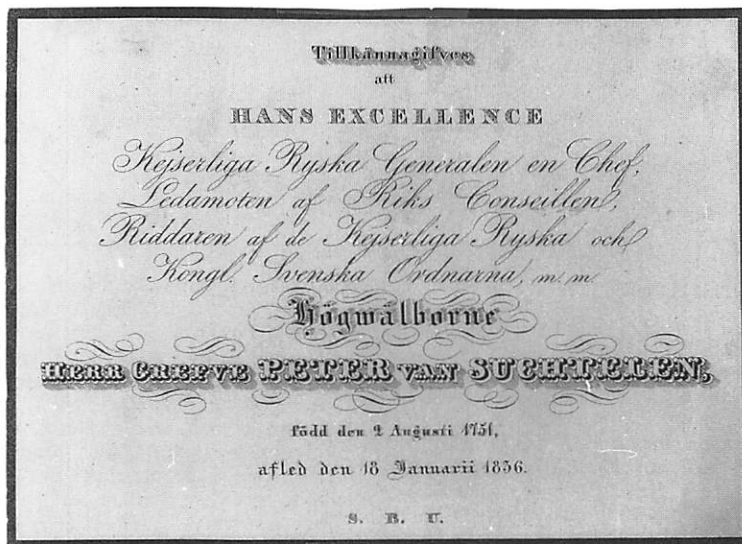 Tillkännagifves
att
HANS EXCELLENCE
Kejserliga Ryska Generalen en Chef,
Ledamoten af Riks Conseillen,
Riddaren af de Kejserliga Ryska och
Kongl. Svenska Ordnarna, m. m.
Högwälborne
HERR GREFVE PETER VAN SUCHTELEN,
född den 2 Augusti 1751,
afled den 18 Januarii 1836.
S. B. U.